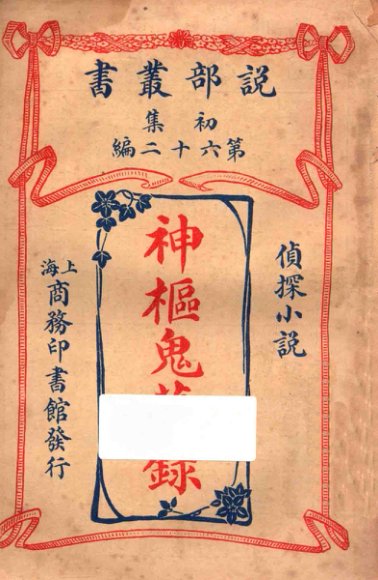 説部叢書
初集
第六十二編
偵探小説
神樞鬼錄
上海
商務印書館發行